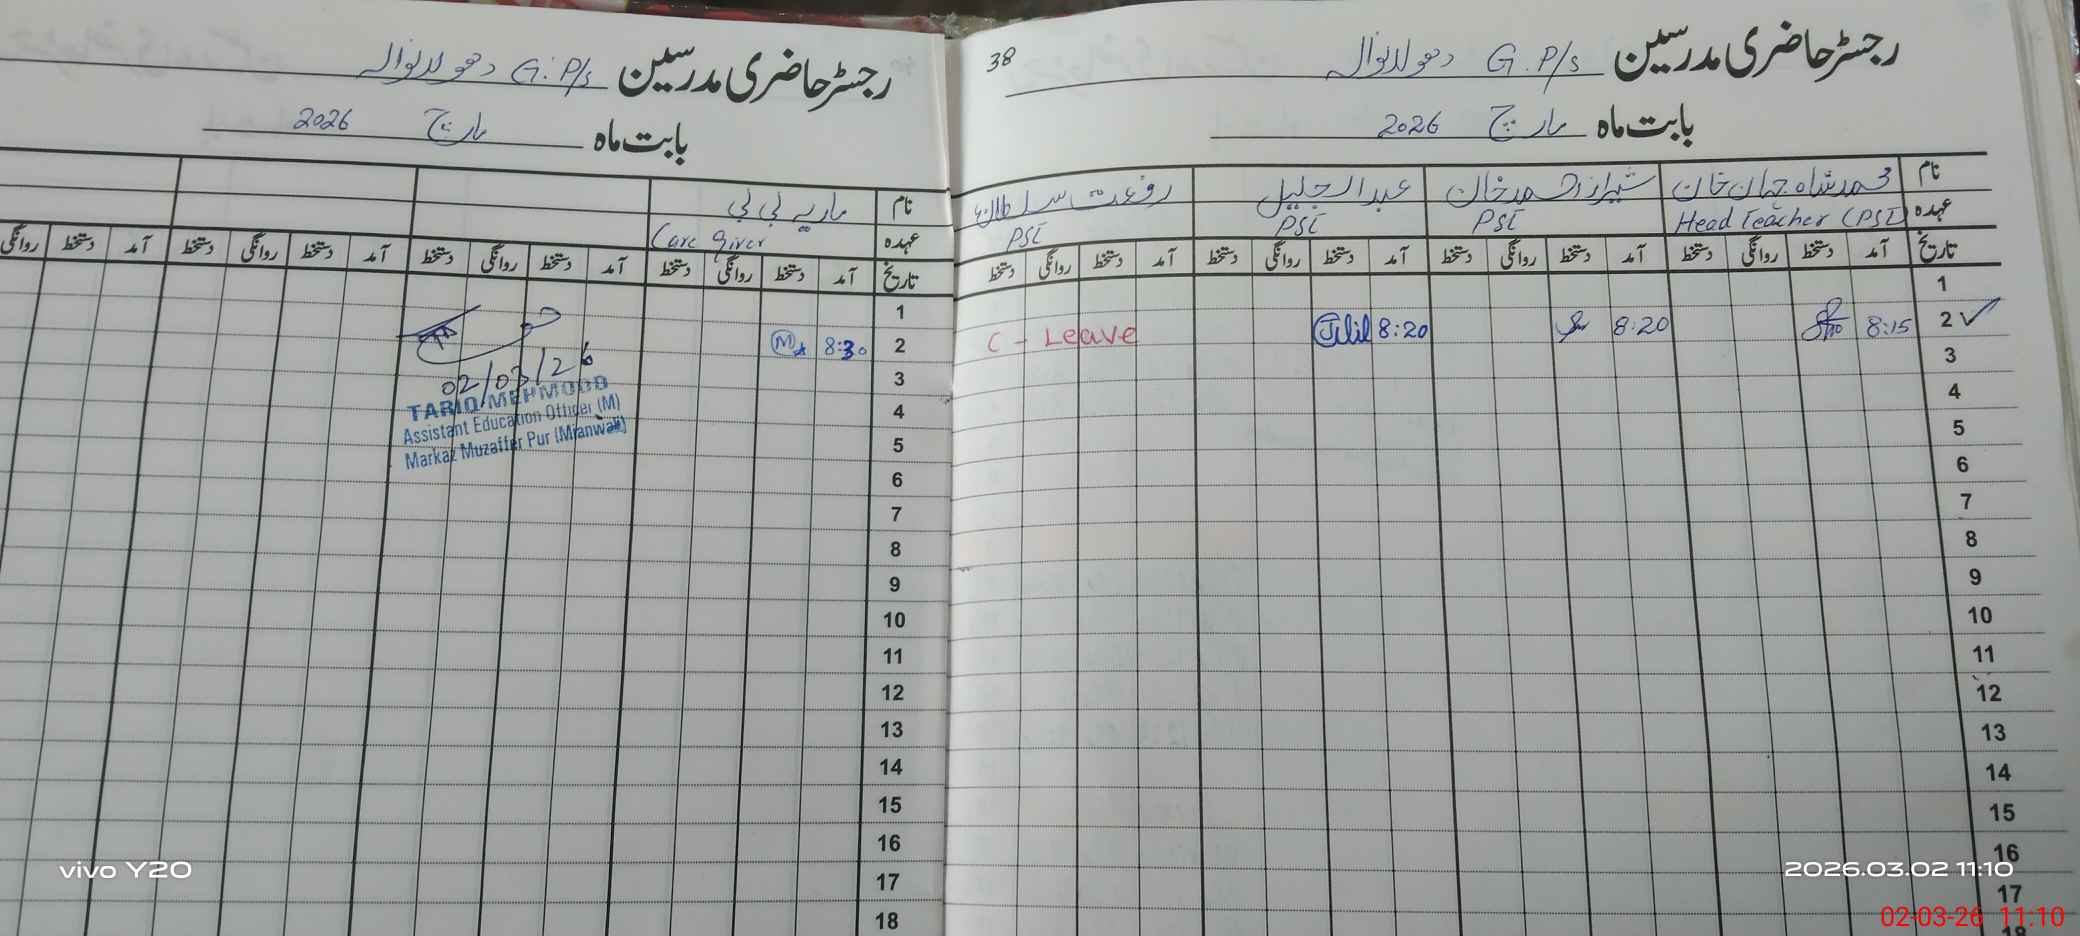 38
رجسٹر حاضری مدرسین G.P/s دھولانوالہ
بابت ماہ مارچ 2026
نام محمد شاہ جہان خان شیراز احمد خان عبدالجلیل رفعت سلطانہ
عہدہ Head Teacher (PST) PST PST PST
تاریخ آمد دستخط روانگی دستخط آمد دستخط روانگی دستخط آمد دستخط روانگی دستخط آمد دستخط روانگی دستخط
1
2 ✓ 8:15 8:20 8:20 Jilil C - Leave
3
4
5
6
7
8
9
10
11
12
13
14
15
16
17
18
رجسٹر حاضری مدرسین G.P/s دھولانوالہ
بابت ماہ مارچ 2026
نام ماریہ بی بی
عہدہ Care Giver
تاریخ آمد دستخط روانگی دستخط آمد دستخط روانگی دستخط آمد دستخط روانگی دستخط آمد دستخط روانگی
1
2 8:30
3
4
5
6
7
8
9
10
11
12
13
14
15
16
17
18
02/03/26
TARIQ MEHMOOD
Assistant Education Officer (M)
Markaz Muzaffer Pur (Mianwali)
vivo Y20
2026.03.02 11:10
02-03-26 11:10